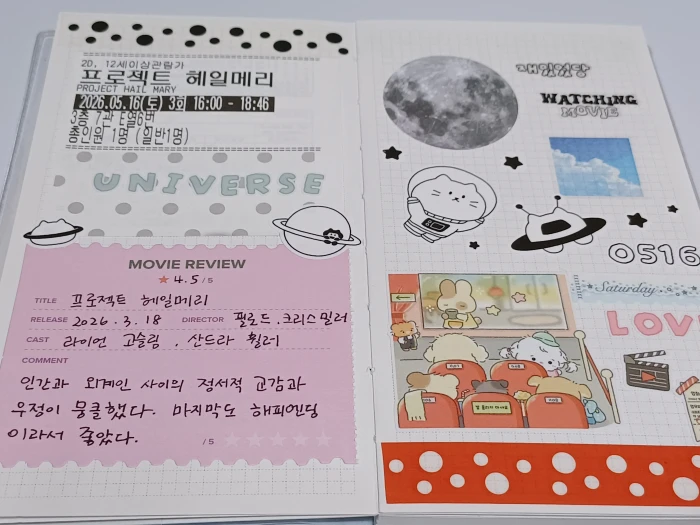 2D, 12세이상관람가
프로젝트 헤일메리
PROJECT HAIL MARY
2026.05.16(토) 3회 16:00 - 18:46
3층 7관 E열6번
총인원 1명 (일반1명)
UNIVERSE
MOVIE REVIEW
★ 4.5 / 5
TITLE 프로젝트 헤일메리
RELEASE 2026.3.18 DIRECTOR 필로드.크리스밀러
CAST 라이언 고슬링. 산드라 휠러
COMMENT
인간과 외계인 사이의 정서적 교감과
우정이 뭉클했다. 마지막도 해피엔딩
이라서 좋았다.
/ 5
재밌었당
WATCHING
MOVIE
0516
Saturday
LOV